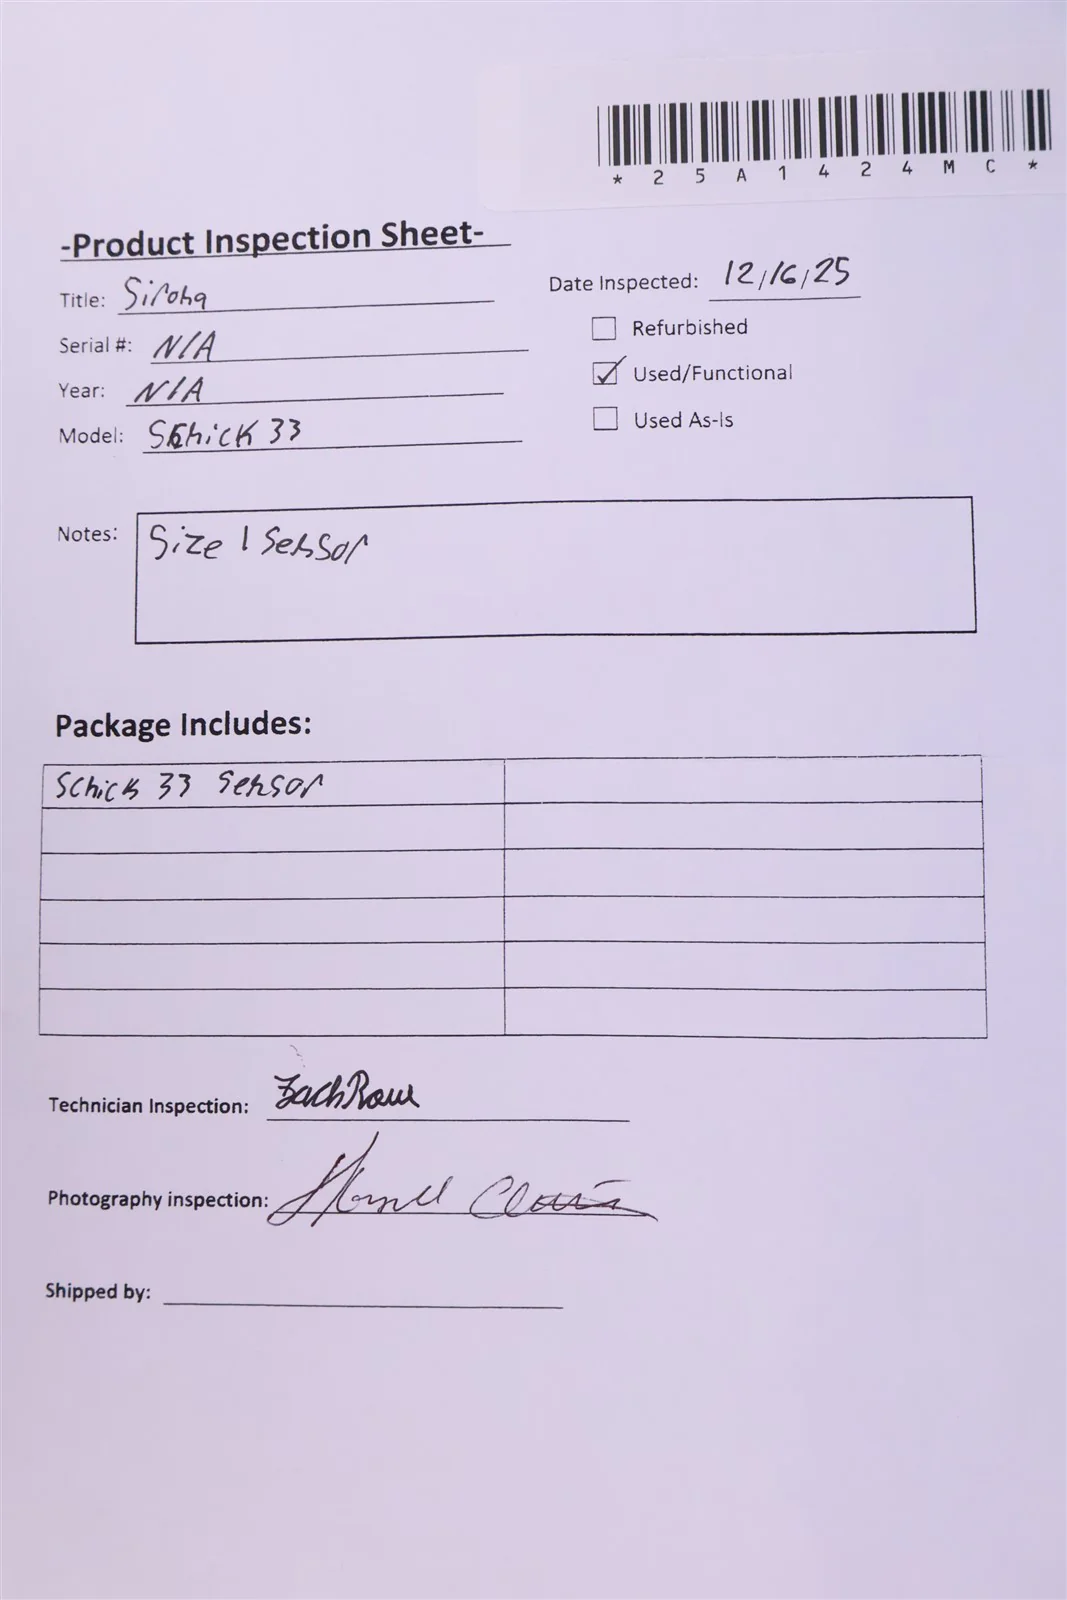 *25A1424MC*
-Product Inspection Sheet-
Title: Sirona
Date Inspected: 12/16/25
Refurbished
Serial #: N/A
Used/Functional
Year: N/A
Used As-Is
Model: Schick 33
Notes: Size 1 Sensor
Package Includes:
Schick 33 Sensor
Technician Inspection: Zach Rowe
Photography inspection:
Shipped by: